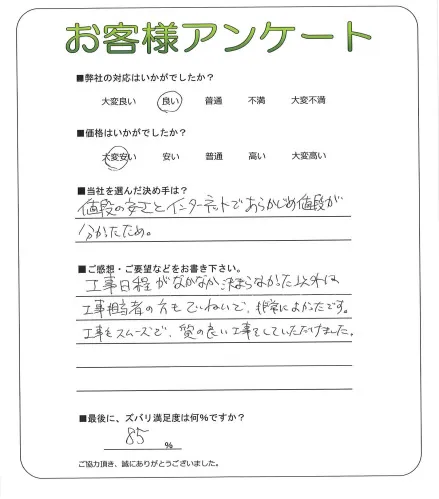 お客様アンケート
■弊社の対応はいかがでしたか？
大変良い 良い 普通 不満 大変不満
■価格はいかがでしたか？
大変安い 安い 普通 高い 大変高い
■当社を選んだ決め手は？
値段の安さとインターネットであらかじめ値段が
分かったため。
■ご感想・ご要望などをお書き下さい。
工事日程がなかなか決まらなかった以外は
工事担当者の方もていねいで、非常によかったです。
工事もスムーズで、質の良い工事をしていただけました。
■最後に、ズバリ満足度は何%ですか？
85
%
ご協力頂き、誠にありがとうございました。